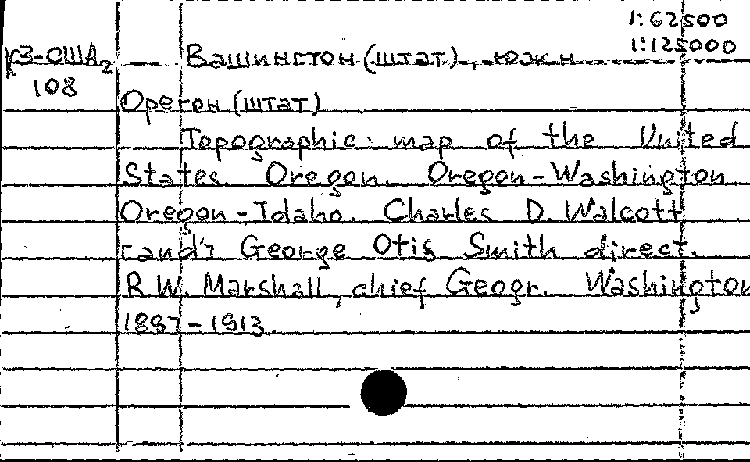 1:62500
1:125000
К3-США2 Вашингтон (штат), южн
108
Орегон (штат)
Topographic map of the United
States. Oregon. Oregon-Washington
Oregon-Idaho. Charles D. Walcott
[and] George Otis Smith direct.
R.W. Marshall, chief Geogr. Washington
1887-1913.